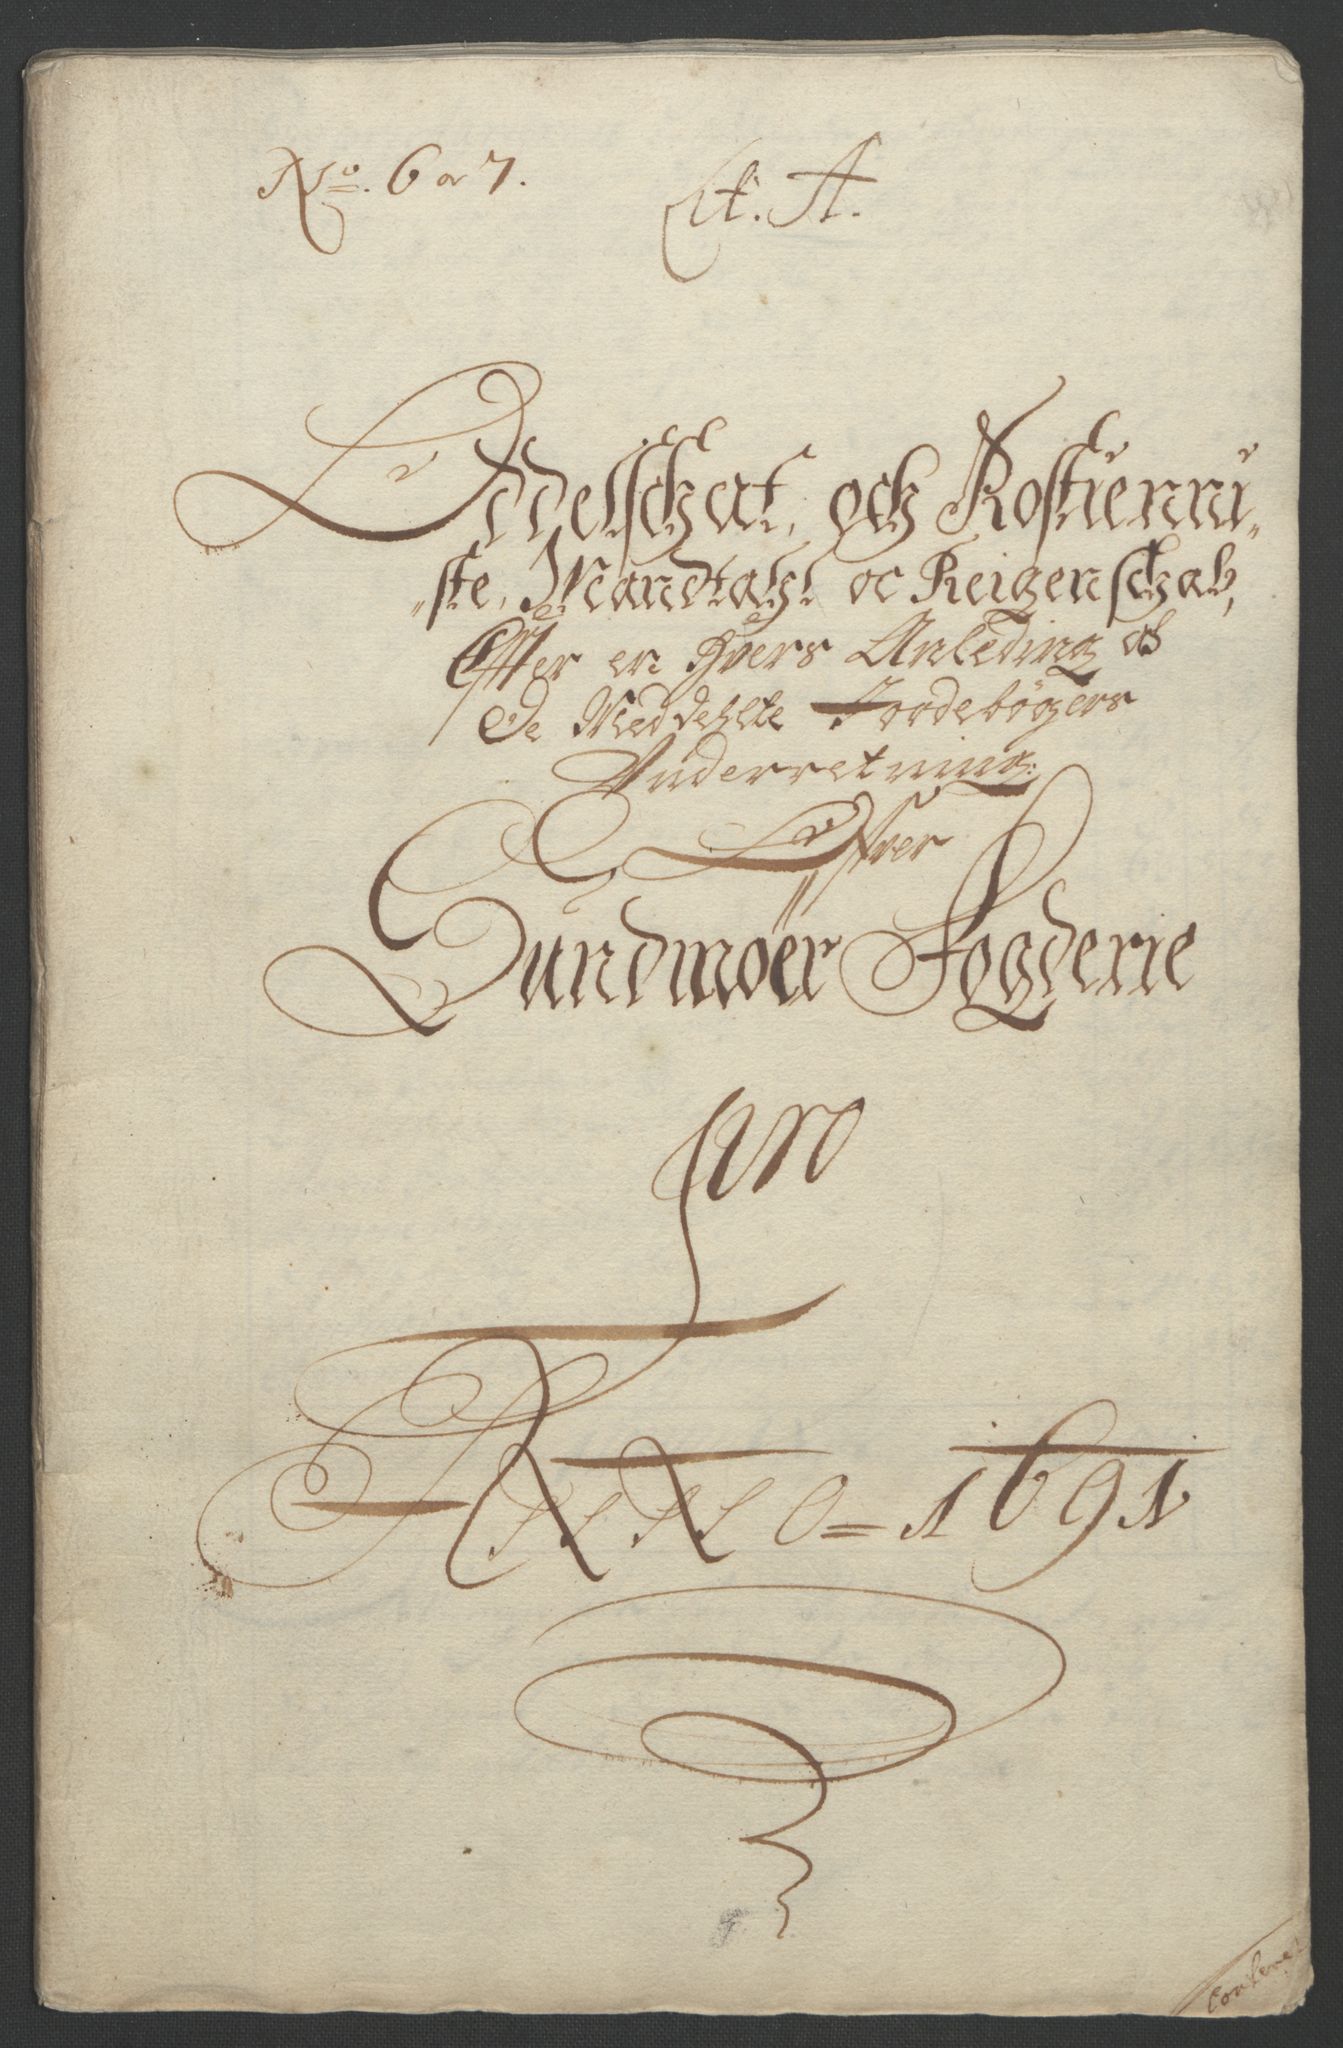 No. 6 or 7. Lit. A.
Oddelschat, och Rostienni„
„ste, Mandtahl oc Reigenschab,
Effter en hvers Anleding af
De Meddehlte Jordebøgers
Underretning:
Offver
Sundmöer Fogderie
pro
ANNO = 1691